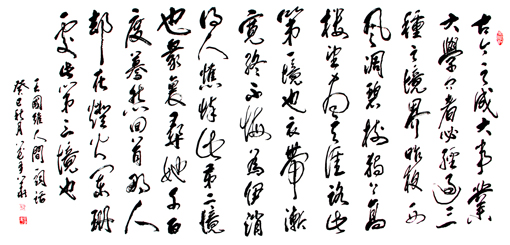 古今之成大事業
大學問者必經過三
種之境界昨夜西
風凋碧樹獨上高
樓望盡天涯路此
第一境也衣帶漸
寬終不悔為伊消
得人憔悴此第二境
也衆裏尋她千百
度驀然回首那人
却在燈火闌珊
處此第三境也
王國維人間詞話
癸巳秋月